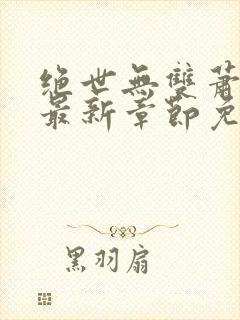 絕世無雙蕭
最新章節免
黑羽扇